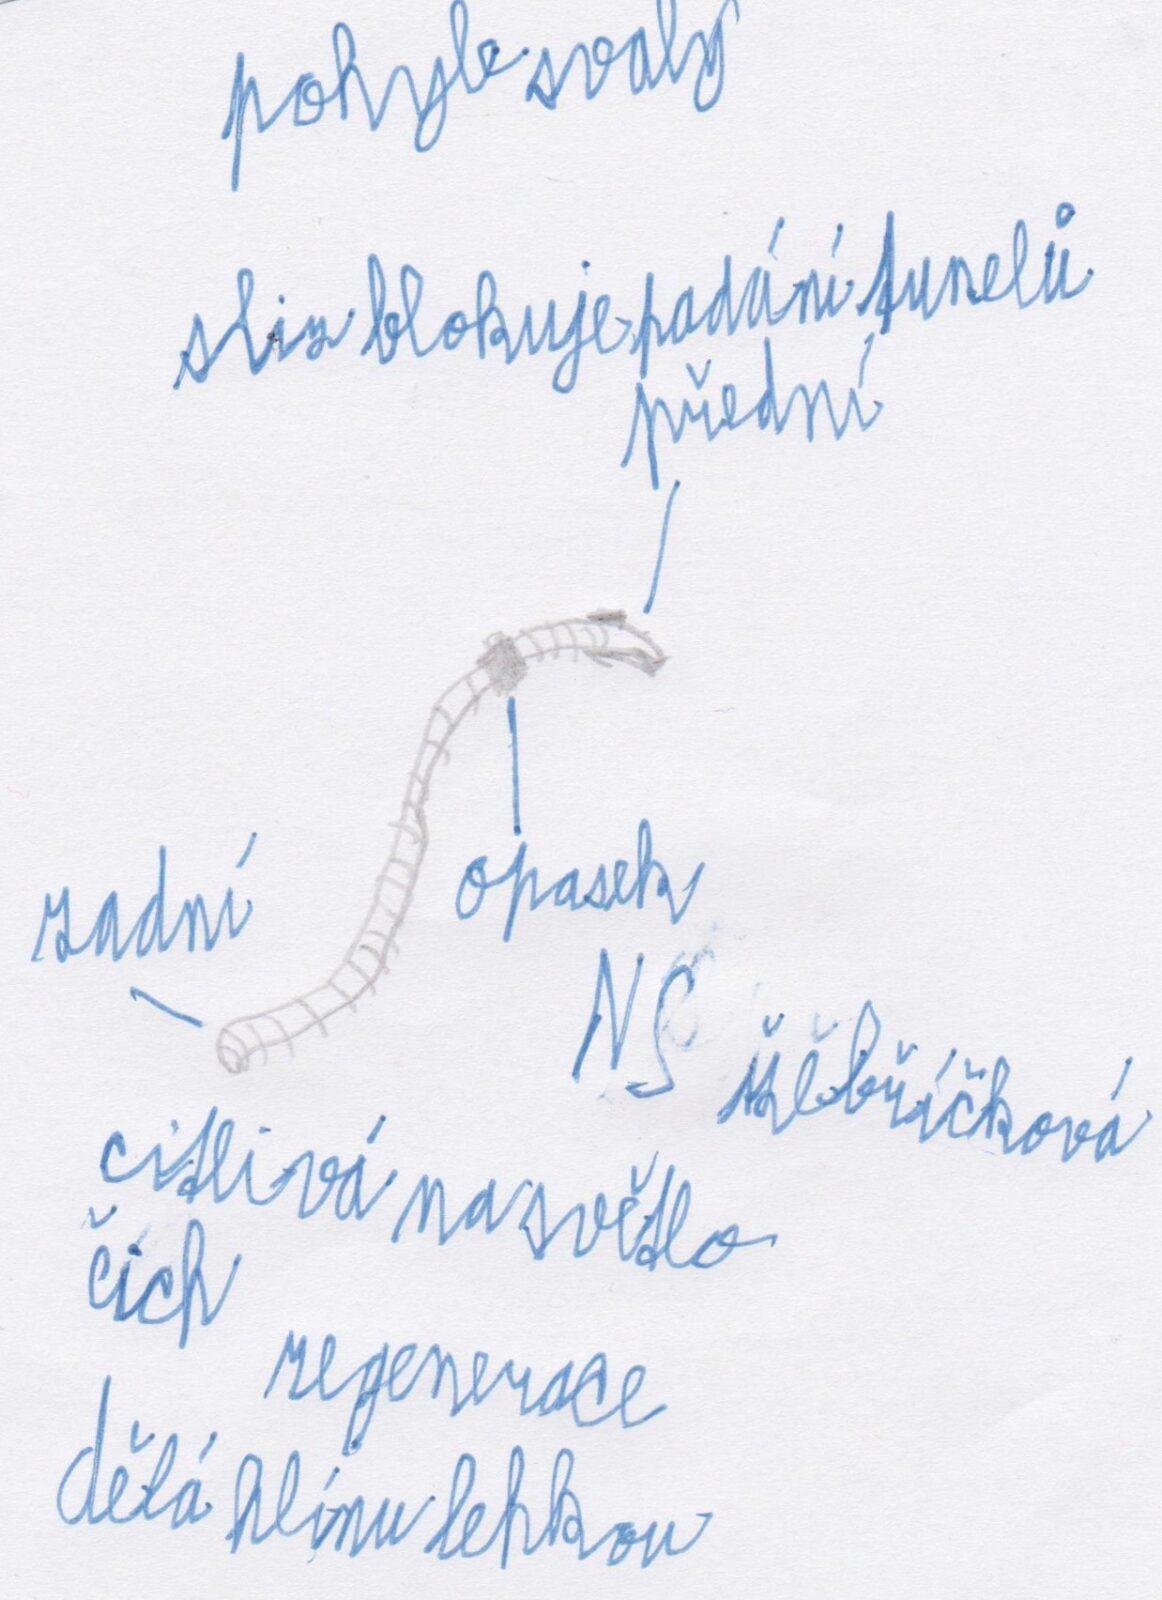 pohyb svaly
sliz blokuje padání tunelů
přední
zadní
opasek
NS
žebříčková
citlivá na světlo
čich
regenerace
dělá hlínu lehkou